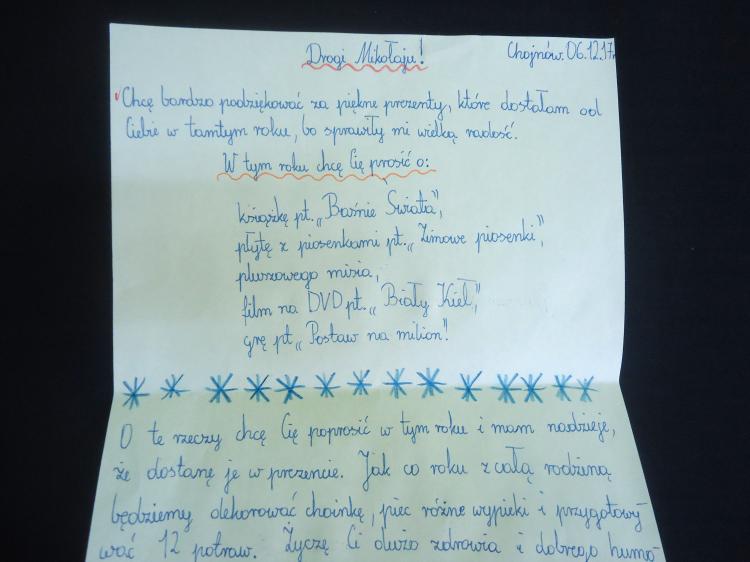 Drogi Mikołaju!
Chojnów. 06.12.17r
Chcę bardzo podziękować za piękne prezenty, które dostałam od
Ciebie w tamtym roku, bo sprawiły mi wielką radość.
W tym roku chcę Cię prosić o:
książkę pt. „Baśnie Świata”,
płytę z piosenkami pt. „Zimowe piosenki”,
pluszowego misia,
film na DVD pt. „Biały Kieł”,
grę pt „Postaw na milion”.
O te rzeczy chcę Cię poprosić w tym roku i mam nadzieje,
że dostanę je w prezencie. Jak co roku z całą rodziną
będziemy dekorować choinkę, piec różne wypieki i przygotowy-
wać 12 potraw. Życzę Ci dużo zdrowia i dobrego humo-